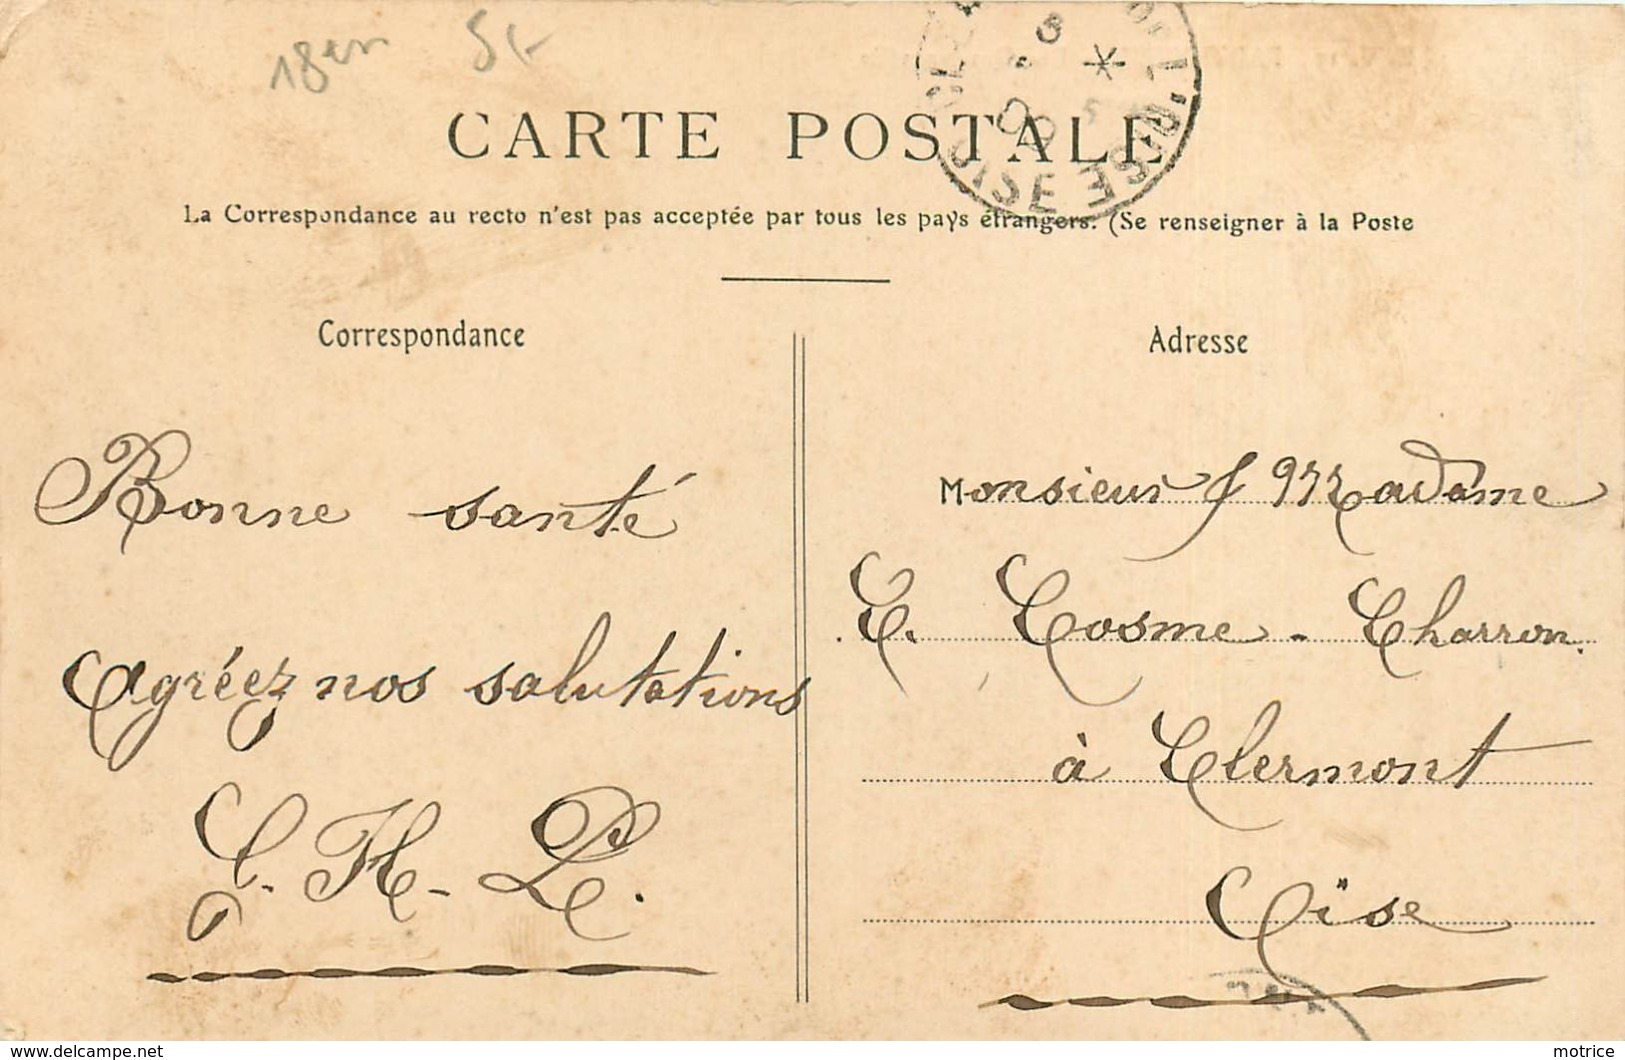 18en 5f
CARTE POSTALE
La Correspondance au recto n'est pas acceptée par tous les pays étrangers. (Se renseigner à la Poste
OISE
Correspondance
Adresse
Bonne santé
Agréez nos salutations
Monsieur & Madame
E. Cosme - Charron.
à Clermont
Oïse
delcampe.net
motrice